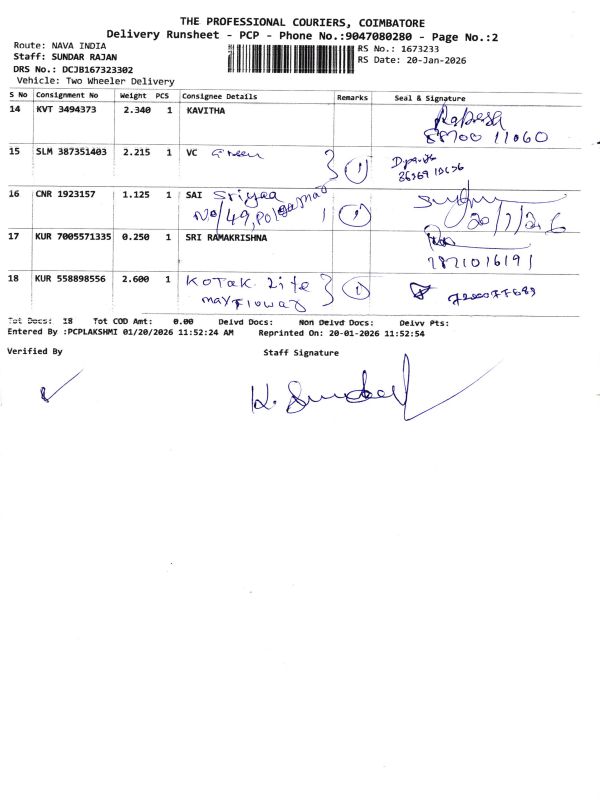 THE PROFESSIONAL COURIERS, COIMBATORE
Delivery Runsheet - PCP - Phone No.:9047080280 - Page No.:2
Route: NAVA INDIA
RS No.: 1673233
Staff: SUNDAR RAJAN
RS Date: 20-Jan-2026
DRS No.: DCJB167323302
Vehicle: Two Wheeler Delivery
S No Consignment No Weight PCS Consignee Details Remarks Seal & Signature
14 KVT 3494373 2.340 1 KAVITHA
88700 11060
15 SLM 387351403 2.215 1 VC Green 1
16 CNR 1923157 1.125 1 SAI Sriyaa
No/49, 1
20/1/26
17 KUR 7005571335 0.250 1 SRI RAMAKRISHNA
18 KUR 558898556 2.600 1 KOTAK Life 1
mayflower
Tot Docs: 18 Tot COD Amt: 0.00 Delvd Docs: Non Delvd Docs: Delvy Pts:
Entered By :PCPLAKSHMI 01/20/2026 11:52:24 AM Reprinted On: 20-01-2026 11:52:54
Verified By Staff Signature
K. Sundar